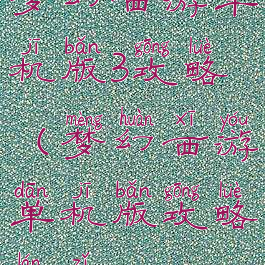 梦幻西游单
jī bǎn gōng lüè
机版3攻略
mèng huàn xī yóu
(梦幻西游
dān jī bǎn gōng lüè
单机版攻略